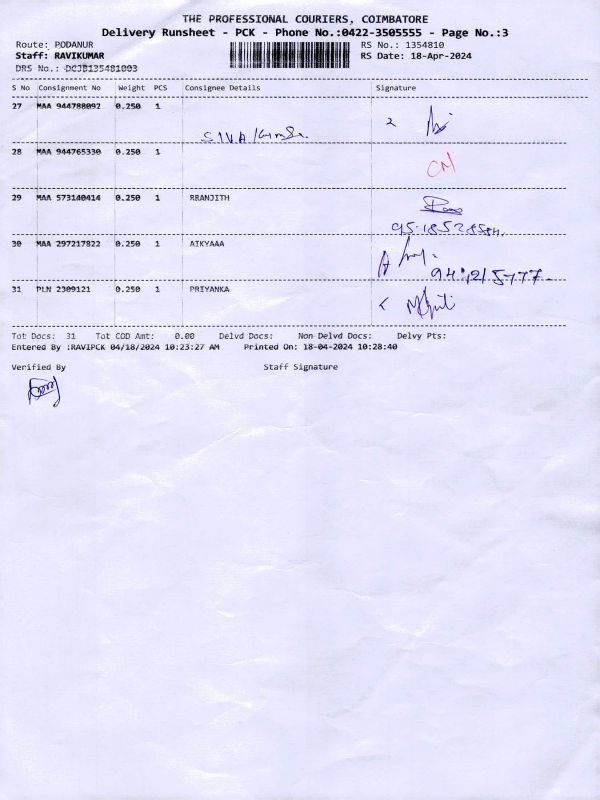 THE PROFESSIONAL COURIERS, COIMBATORE
Delivery Runsheet - PCK - Phone No.:0422-3505555 - Page No.:3
Route: PODANUR RS No.: 1354810
Staff: RAVIKUMAR RS Date: 18-Apr-2024
DRS No.: DCJB135481003
S No Consignment No Weight PCS Consignee Details Signature
27 MAA 944788092 0.250 1
28 MAA 944765330 0.250 1
CM
29 MAA 573140414 0.250 1 RRANJITH
30 MAA 297217822 0.250 1 AIKYAAA
31 PLN 2309121 0.250 1 PRIYANKA
Tot Docs: 31 Tot COD Amt: 0.00 Delvd Docs: Non Delvd Docs: Delvy Pts:
Entered By :RAVIPCK 04/18/2024 10:23:27 AM Printed On: 18-04-2024 10:28:40
Verified By Staff Signature